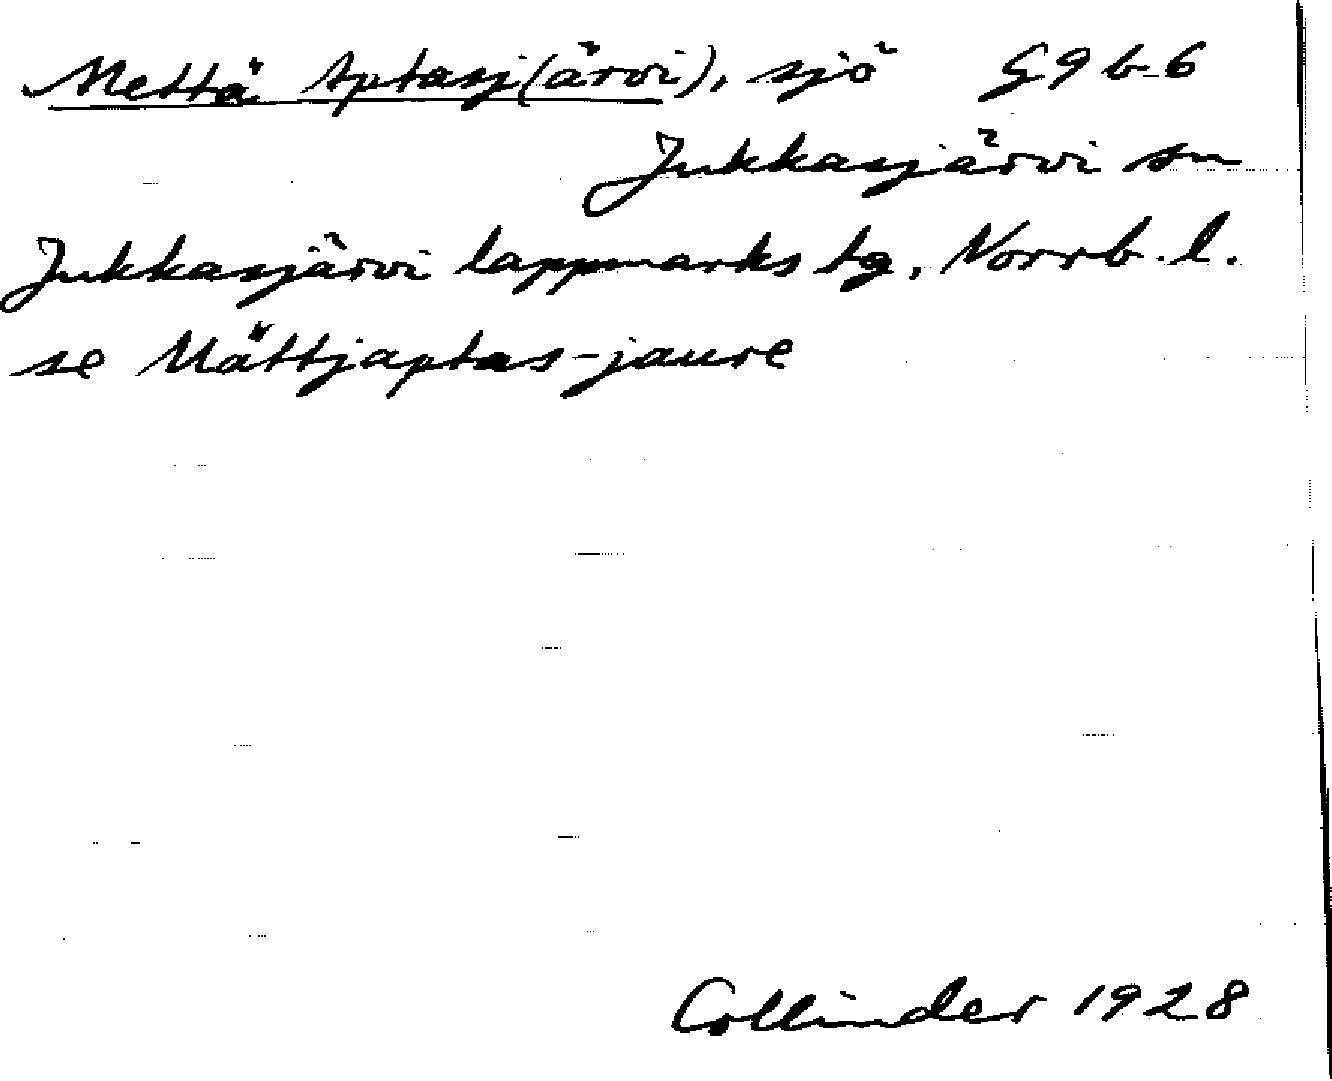 Mettä Aptasj(ärvi), sjö G9b6
Jukkasjärvi sn
Jukkasjärvi lappmarks tg, Norrb. l.
se Mättjaptas-jaure
Collinder 1928